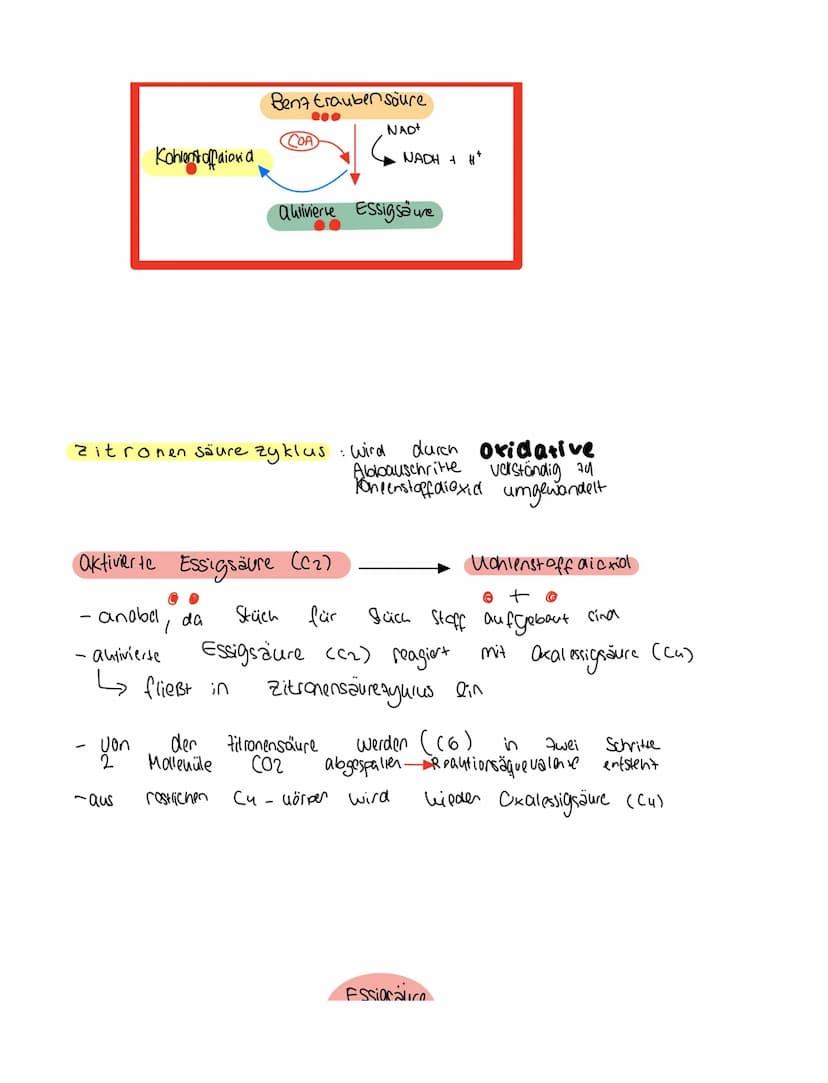 Benztraubensäure
NAD+
COA
Kohlenstoffdioxid
NADH + H+
aktivierte Essigsäure
Zitronensäurezyklus : wird durch oxidative
Abbauschritte vollständig zu
Kohlenstoffdioxid umgewandelt
aktivierte Essigsäure (C2) → Kohlenstoffdioxid
+
- anabol, da Stück für Stück Stoff aufgebaut sind
- aktivierte Essigsäure (C2) reagiert mit Oxalessigsäure (C4)
↳ fließt in Zitronensäurezyklus ein
- Von der Zitronensäure werden (C6) in zwei Schritte
2 Moleküle CO2 abgespalten → entsteht
- aus restlichen C4 - körper wird wieder Oxalessigsäure (C4)
Essigsäure